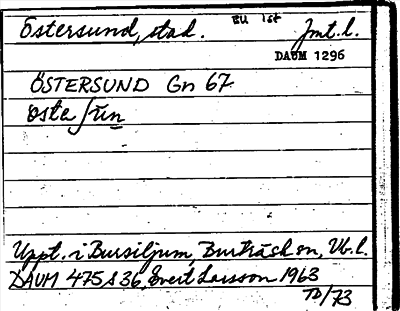 Östersund, stad. EU 1st Jmt.l.
DAUM 1296
ÖSTERSUND Gn 67
Uppt. i Bursiljum, Burträsk sn, Vb.l.
DAUM 475 s 36, Evert Larsson 1963
TD/73